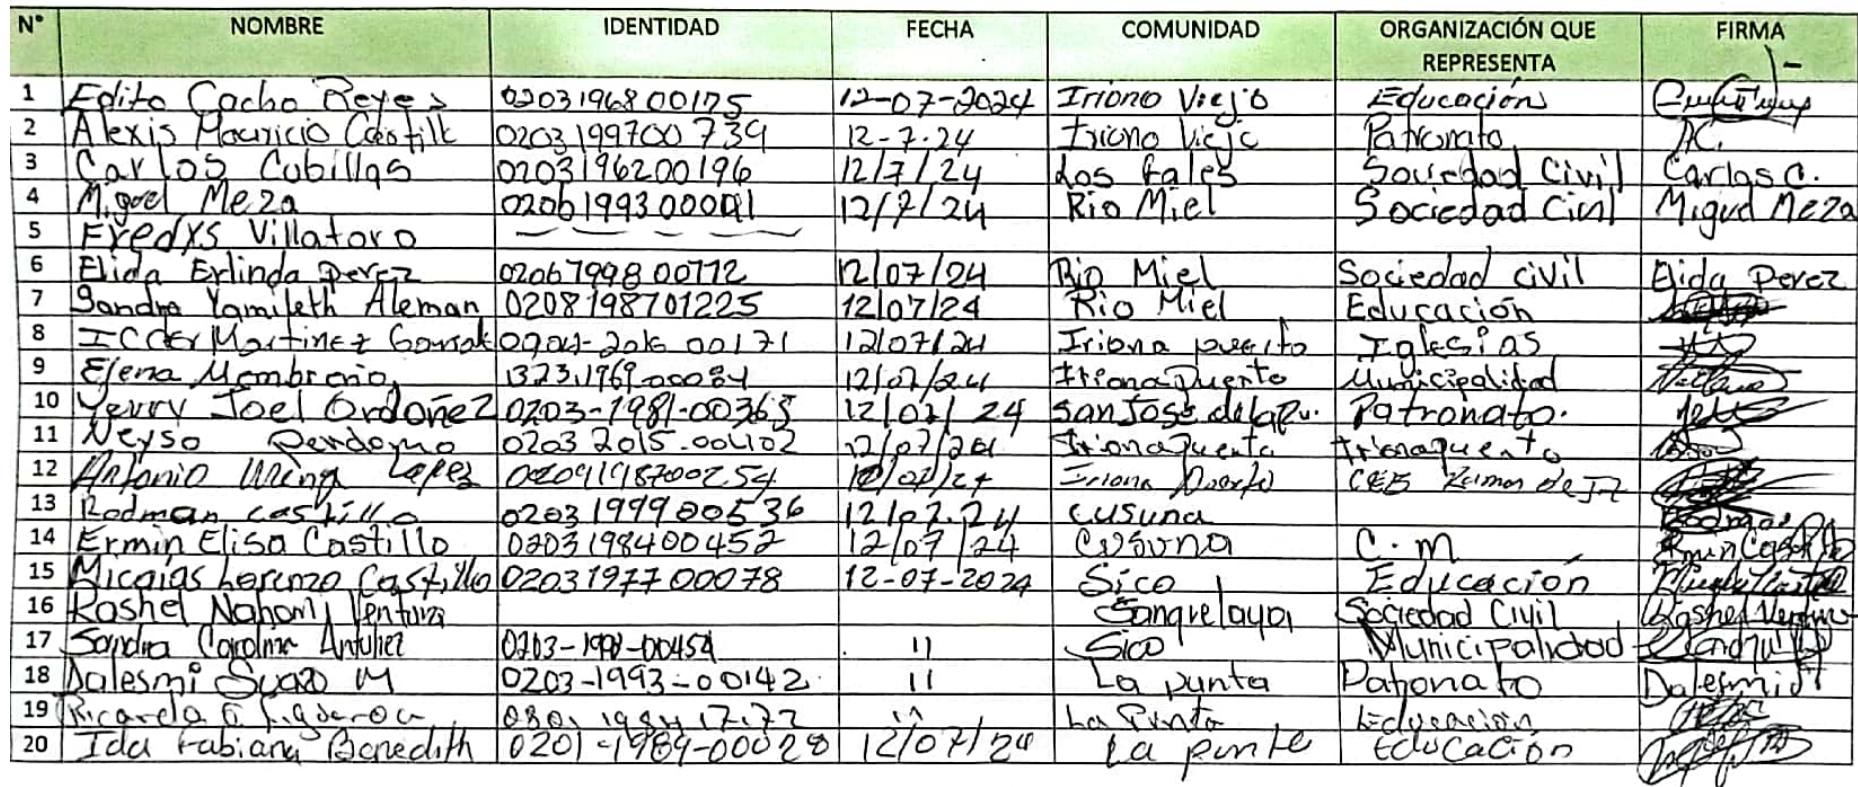 N° NOMBRE IDENTIDAD FECHA COMUNIDAD ORGANIZACIÓN QUE REPRESENTA FIRMA
1 Edito Cacho Reyes 0203196800175 12-07-2024 Iriona Viejo Educación
2 Alexis Mauricio Castill 0203199700739 12-7-24 Iriona Viejo Patronato A.C.
3 Carlos Cubillas 0203196200196 12/7/24 Los fales Sociedad Civil Carlos C.
4 Miguel Meza 0206199300091 12/7/24 Rio Miel Sociedad Civil Miguel Meza
5 Fredys Villatoro
6 Elida Erlinda perez 0206199800772 12/07/24 Rio Miel Sociedad civil Elida Perez
7 Sandra Yamileth Aleman 0208198701225 12/07/24 Rio Miel Educación
8 Martinez 00171 12/07/24 Iriona puerto Iglesias
9 Elena Membreño 12/07/24 Iriona Puerto Municipalidad
10 Yerry Joel Ordoñez 0203-1981-00363 12/07/24 San Jose de la Pu. Patronato.
11 Neyso Perdomo 0203 2015-00402 12/07/24 Iriona Puerto Iriona puerto
12 Antonio Lopez 12/07/24 Iriona Puerto CEB
13 Rodman castillo 0203199900536 12/07.24 cusuna
14 Ermin Elisa Castillo 0203198400452 12/07/24 Cusuna C.M
15 Micaías Lorenzo Castillo 0203197700078 12-07-2024 Sico Educación
16 Roshel Nahomi Ventura Sangrelaya Sociedad Civil Roshel Ventura
17 Sandra Carolina Antúnez 0203- -00454 11 Sico Municipalidad
18 Dalesmi Suazo M 0203-1993-00142 11 La punta Patronato Dalesmi
19 Ricardo Figueroa 11 La Punta Educación
20 Ida Fabiana Benedith 0201-1989-00028 12/07/24 La punta Educación